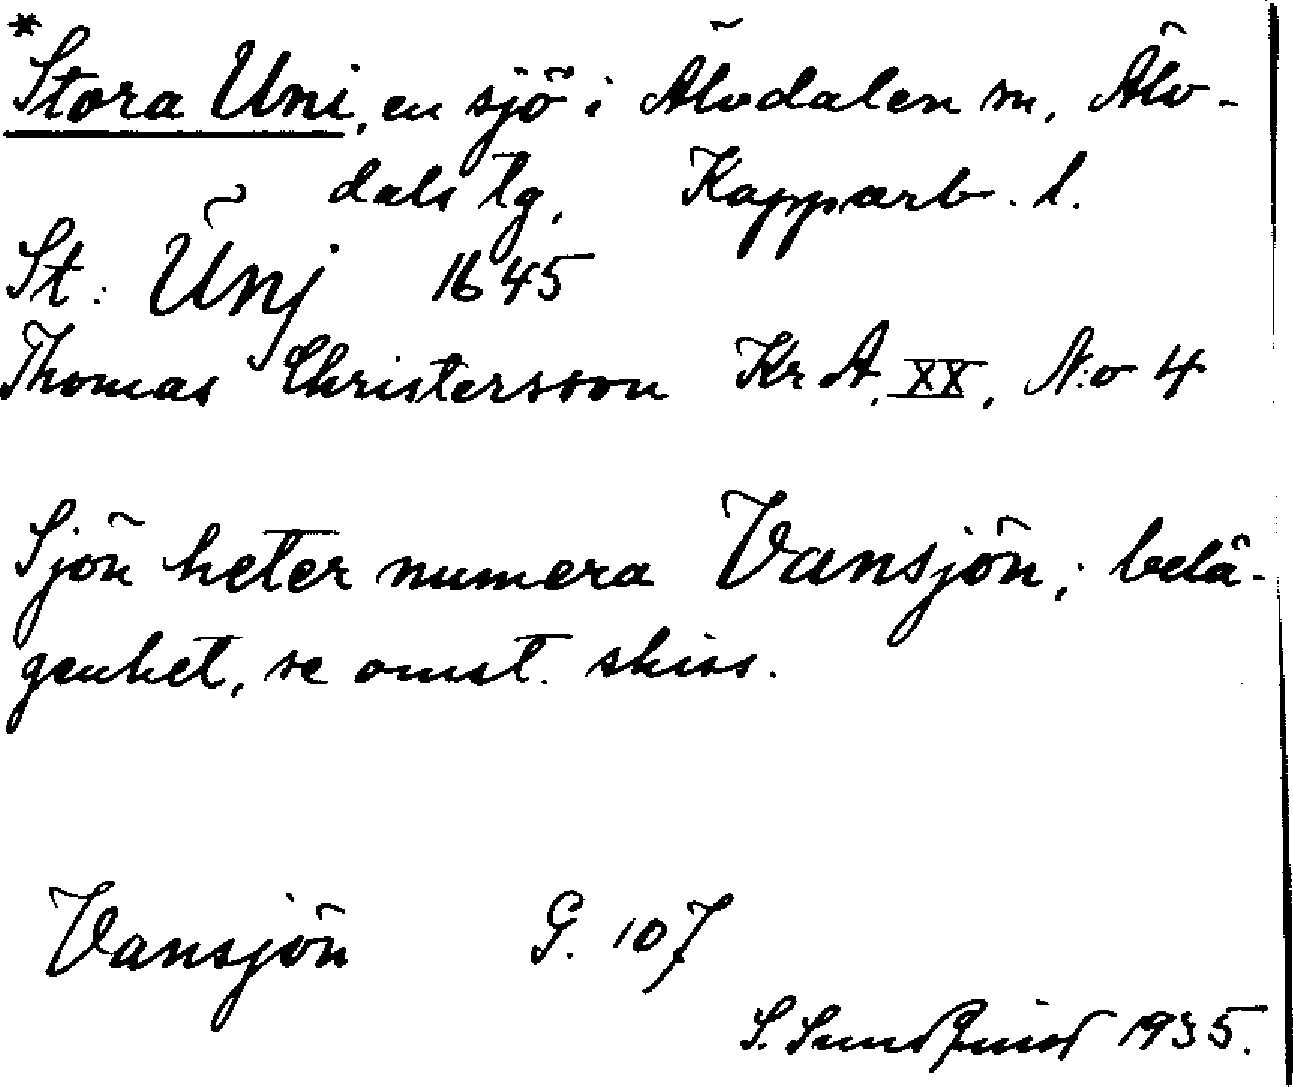 *Stora Uni, en sjö i Älvdalen sn, Älv-
dals tg, Kopparb. l.
St: Ũnj 1645
Thomas Christersson Kr A. XX, N:o 4
Sjön heter numera Vansjön; belä-
genhet, se omst. skiss.
Vansjön G. 107
S. Sundquist 1935.